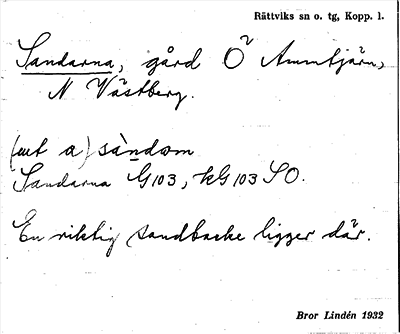 Rättviks sn o. tg, Kopp. l.
Sandarna, gård Ö Ammtjärn,
N Västberg.
(ut a) sàndom
Sandarna G103, kG103 SO.
En riktig sandbacke ligger där.
Bror Lindén 1932